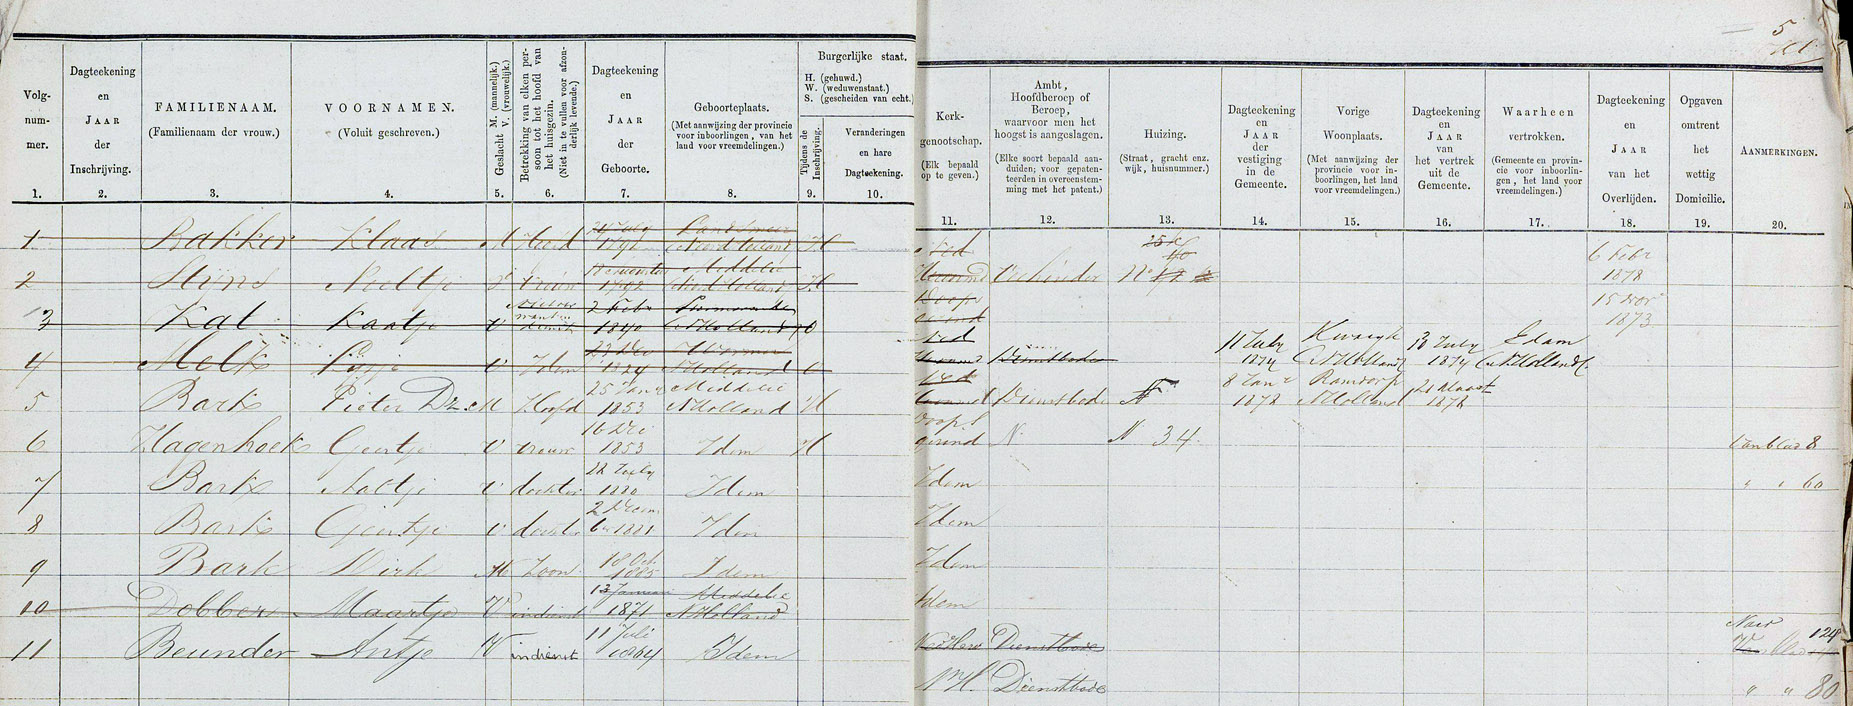 5
Volg-
num-
mer.
1.
Dagteekening
en
JAAR
der
Inschrijving.
2.
FAMILIENAAM.
(Familienaam der vrouw.)
3.
VOORNAMEN.
(Voluit geschreven.)
4.
Geslacht M. (mannelijk.)
V. (vrouwelijk.)
5.
Betrekking van elken per-
soon tot het hoofd van
het huisgezin.
(Niet in te vullen voor afzon-
derlijk levende.)
6.
Dagteekening
en
JAAR
der
Geboorte.
7.
Geboorteplaats.
(Met aanwijzing der provincie
voor inboorlingen, van het
land voor vreemdelingen.)
8.
Burgerlijke staat.
H. (gehuwd.)
W. (weduwenstaat.)
S. (gescheiden van echt.)
Tijdens de
Inschrijving.
9.
Veranderingen
en hare
Dagteekening.
10.
Kerk-
genootschap.
(Elk bepaald
op te geven.)
11.
Ambt,
Hoofdberoep of
Beroep,
waarvoor men het
hoogst is aangeslagen.
(Elke soort bepaald aan-
duiden; voor gepaten-
teerden in overeenstem-
ming met het patent.)
12.
Huizing.
(Straat, gracht enz.
wijk, huisnummer.)
13.
Dagteekening
en
JAAR
der
vestiging
in de
Gemeente.
14.
Vorige
Woonplaats.
(Met aanwijzing der
provincie voor in-
boorlingen, het land
voor vreemdelingen.)
15.
Dagteekening
en
JAAR
van
het vertrek
uit de
Gemeente.
16.
Waarheen
vertrokken.
(Gemeente en provin-
cie voor inboorlin-
gen, het land voor
vreemdelingen.)
17.
Dagteekening
en
JAAR
van het
Overlijden.
18.
Opgaven
omtrent
het
wettig
Domicilie.
19.
AANMERKINGEN.
20.
1 Bakker Klaas M Hoofd 1792 Noord Holland H
2 Stijns Neeltje V vrouw 1792 Middelie Noord Holland H
3 Kat Kaatje V 2 Febr 1840 NHolland
4 Melk V Idem NHolland
5 Bark Pieter Dz. M Hoofd 25 Jan 1853 Middelie NHolland H
6 Hagenhoek Geertje V vrouw 16 Dec 1853 Idem H
7 Bark Aaltje V dochter 22 July 1880 Idem
8 Bark Geertje V dochter 2 Decem
ber 1881 Idem
9 Bark Dirk M Zoon 18 Oct 1885 Idem
10 Dobber Maartje V indienst 13 Januari 1871 Middelie NHolland
11 Beunder Antje V indienst 11 Juli 1864 Idem
Red
No
6 Febr
1878
15 Nov
1873
Dienstbode
11 July
1874
Kwadyk
NHolland
13 July
1874
Edam
NHolland
Dienstbode
8 Jan
1878
Ransdorp
NHolland
21 Maart
1878
Doopsgezind
N 34
Van blad 8
Idem
" " 60
Idem
Idem
Idem
Ned Herv Dienstbode
Naar blad 124
N.H. Dienstbode
" " 80